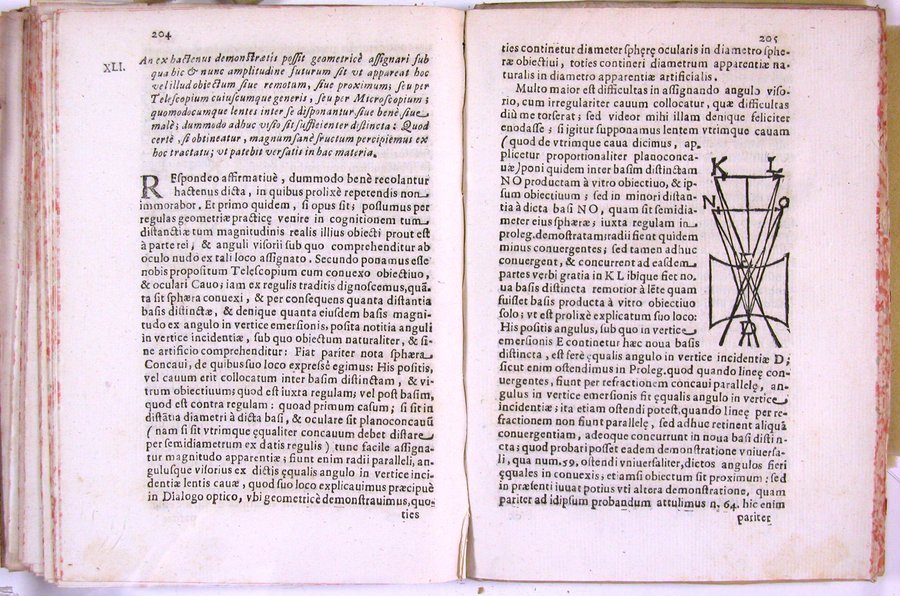 204
XLI.
An ex hactenus demonstratis possit geometricè assignari sub
qua hic & nunc amplitudine futurum sit vt appareat hoc
vel illud obiectum siue remotum, siue proximum; seu per
Telescopium cuiuscumque generis, seu per Microscopium;
quomodocumque lentes inter se disponantur siue benè, siue
malè; dummodo adhuc visio sit sufficienter distincta: Quod
certè, si obtineatur, magnum sanè fructum percipiemus ex
hoc tractatu; vt patebit versatis in hac materia.
REspondeo affirmatiuè, dummodo benè recolantur
hactenus dicta, in quibus prolixè reperendis non
immorabor. Et primo quidem, si opus sit; possumus per
regulas geometriæ practicę venire in cognitionem tum
distantiæ tum magnitudinis realis illius obiecti prout est
à parte rei, & anguli visorij sub quo comprehenditur ab
oculo nudo ex tali loco assignato. Secundo ponamus esse
nobis propositum Telescopium cum conuexo obiectiuo,
& oculari Cauo; iam ex regulis traditis dignoscemus, quã-
ta sit sphæra conuexi, & per consequens quanta distantia
basis distinctæ, & denique quanta eiusdem basis magni-
tudo ex angulo in vertice emersionis, posita notitia anguli
in vertice incidentiæ, sub quo obiectum naturaliter, & si-
ne artificio comprehenditur: Fiat pariter nota sphæra
Concaui, de quibus suo loco expressè egimus: His positis,
vel cauum erit collocatum inter basim distinctam, & vi-
trum obiectiuum; quod est iuxta regulam; vel post basim,
quod est contra regulam: quoad primum casum; si sit in
distãtia diametri à dicta basi, & oculare sit planoconcauũ
(nam si sit vtrimque ęqualiter concauum debet distare
per semidiametrum ex datis regulis) tunc facile assigna-
tur magnitudo apparentiæ; fiunt enim radii paralleli, an-
gulusque visorius ex dictis ęqualis angulo in vertice inci-
dentiæ lentis cauæ, quod suo loco explicauimus præcipuè
in Dialogo optico, vbi geometricè demonstrauimus, quo-
ties
205
ties continetur diameter sphęrę ocularis in diametro sphe-
ræ obiectiui, toties contineri diametrum apparentiæ na-
turalis in diametro apparentiæ artificialis.
Multo maior est difficultas in assignando angulo viso-
rio, cum irregulariter cauum collocatur, quæ difficultas
diù me torserat; sed videor mihi illam denique feliciter
enodasse; si igitur supponamus lentem vtrimque cauam
(quod de vtrimque caua dicimus, ap-
plicetur proportionaliter planoconca-
uæ) poni quidem inter basim distinctam
NO productam à vitro obiectiuo, & ip-
sum obiectiuum; sed in minori distan-
tia à dicta basi NO, quam sit semidia-
meter eius sphæræ; iuxta regulam in
proleg. demostratam; radii fient quidem
minus conuergentes; sed tamen adhuc
conuergent, & concurrent ad easdem
partes verbi gratia in KL ibique fiet no.
ua basis distincta remotior à lẽte quam
fuisset basis producta à vitro obiectiuo
solo; vt est prolixè explicatum suo loco:
His positis angulus, sub quo in vertice
emersionis E continetur hæc noua basis
distincta, est ferè ęqualis angulo in vertice incidentiæ D;
sicut enim ostendimus in Proleg. quod quando lineę con-
uergentes, fiunt per refractionem concaui parallelę, an-
gulus in vertice emersionis fit ęqualis angulo in vertice
incidentiæ; ita etiam ostendi potest, quando lineę per re-
fractionem non fiunt parallelę, sed adhuc retinent aliquã
conuergentiam, adeoque concurrunt in noua basi disti n-
cta; quod probari posset eadem demonstratione vniuersa-
li, qua num. 59, ostendi vniuersaliter, dictos angulos fieri
ęquales in conuexis; etiamsi obiectum sit proximum: sed
in præsenti iuuat potius vti altera demonstratione, quam
pariter ad idipsum probandum attulimus n. 64. hic enim
pariter
K L
N O
E
D